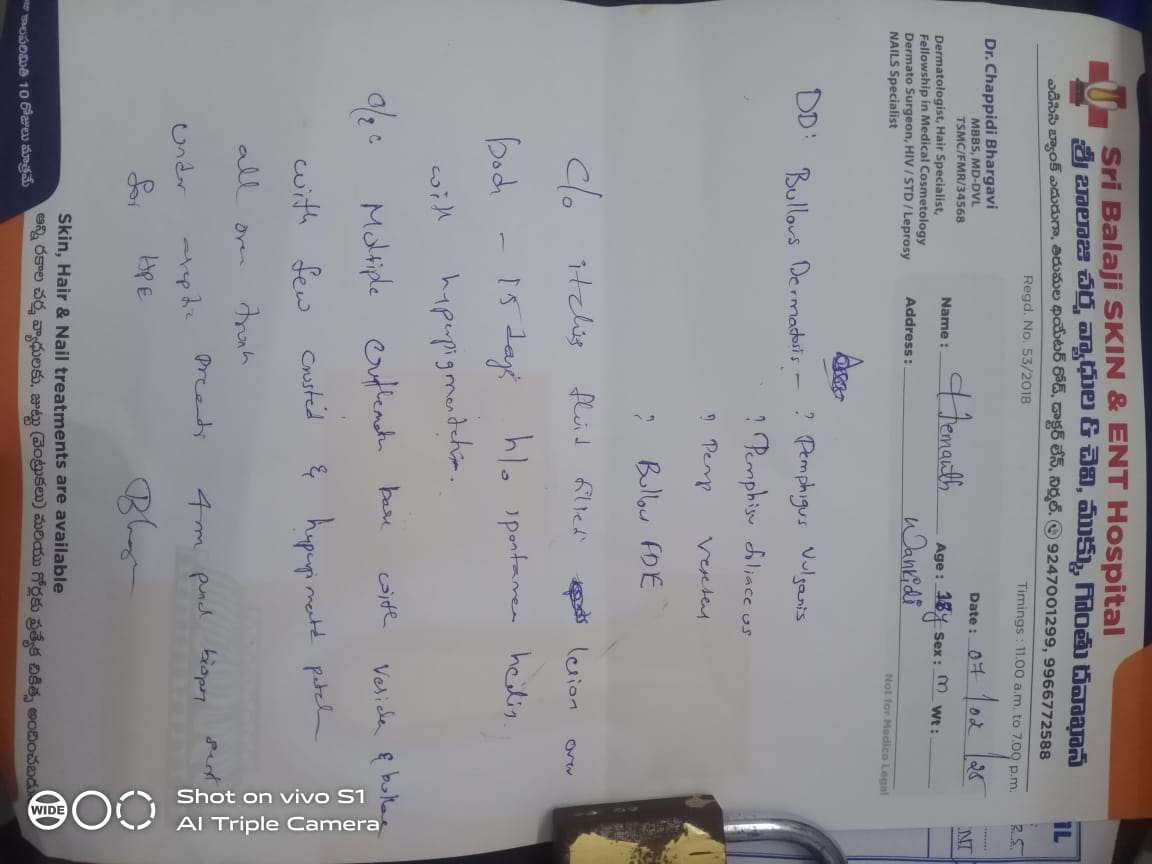 Sri Balaji SKIN & ENT Hospital
శ్రీ బాలాజి చర్మ వ్యాధుల & చెవి, ముక్కు, గొంతు దవాఖాన
ఎదురుగా, తిరుమల థియేటర్ రోడ్, డాక్టర్ లేన్, నిర్మల్. 9247001299, 9966772588
Regd. No. 53/2018
Timings : 11.00 a.m. to 7.00 p.m.
Dr. Chappidi Bhargavi
MBBS, MD-DVL
TSMC/FMR/34568
Dermatologist, Hair Specialist,
Fellowship in Medical Cosmetology
Dermato Surgeon, HIV / STD / Leprosy
NAILS Specialist
Date : 07/02/25
Name : Hemanth Age : 18y Sex : m Wt :
Address :
Not for Medico Legal
DD: Bullous Dermatosis - ? Pemphigus Vulgaris
? Pemphigus foliaceus
? Pemp
? Bullous FDE
C/o itching fluid filled lesion over
body - 15 days h/o spontaneous healing
with hyperpigmentation.
Multiple base with & bullae
with few crusted & patch
all over trunk
under 4m biopsy sent
for HPE
10 రోజులు మాత్రమే
Skin, Hair & Nail treatments are available
అన్ని రకాల చర్మ వ్యాధులకు, జుట్టు (వెంట్రుకలు) మరియు గోర్లకు ప్రత్యేక చికిత్స
WIDE
Shot on vivo S1
AI Triple Camera